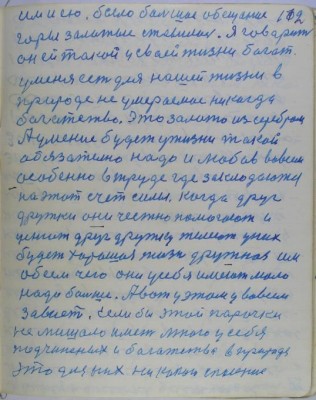 имею, было большое обещание 192
горы золотые ставились. Я говорит
он ей такой у своей жизни богат.
у меня есть для нашей жизни. в
природе не умераемое никогда
богатство. Это золото из серебром
А умение будет у жизни такой
обязателно надо и любов во всем
особенно в труде где закладают
на этот счет силы, когда друг
дружки они чесно помогают и
ценит друг дружку желают у них
будет хорошая жизнь дружная им
обоим чего они у себя имеют мало
надо болше. А вот у этом у во всем
завист. Если бы этой парочки
не мишало имет много у себя
подчиненых и богатства в природе
это для них никакой спасение